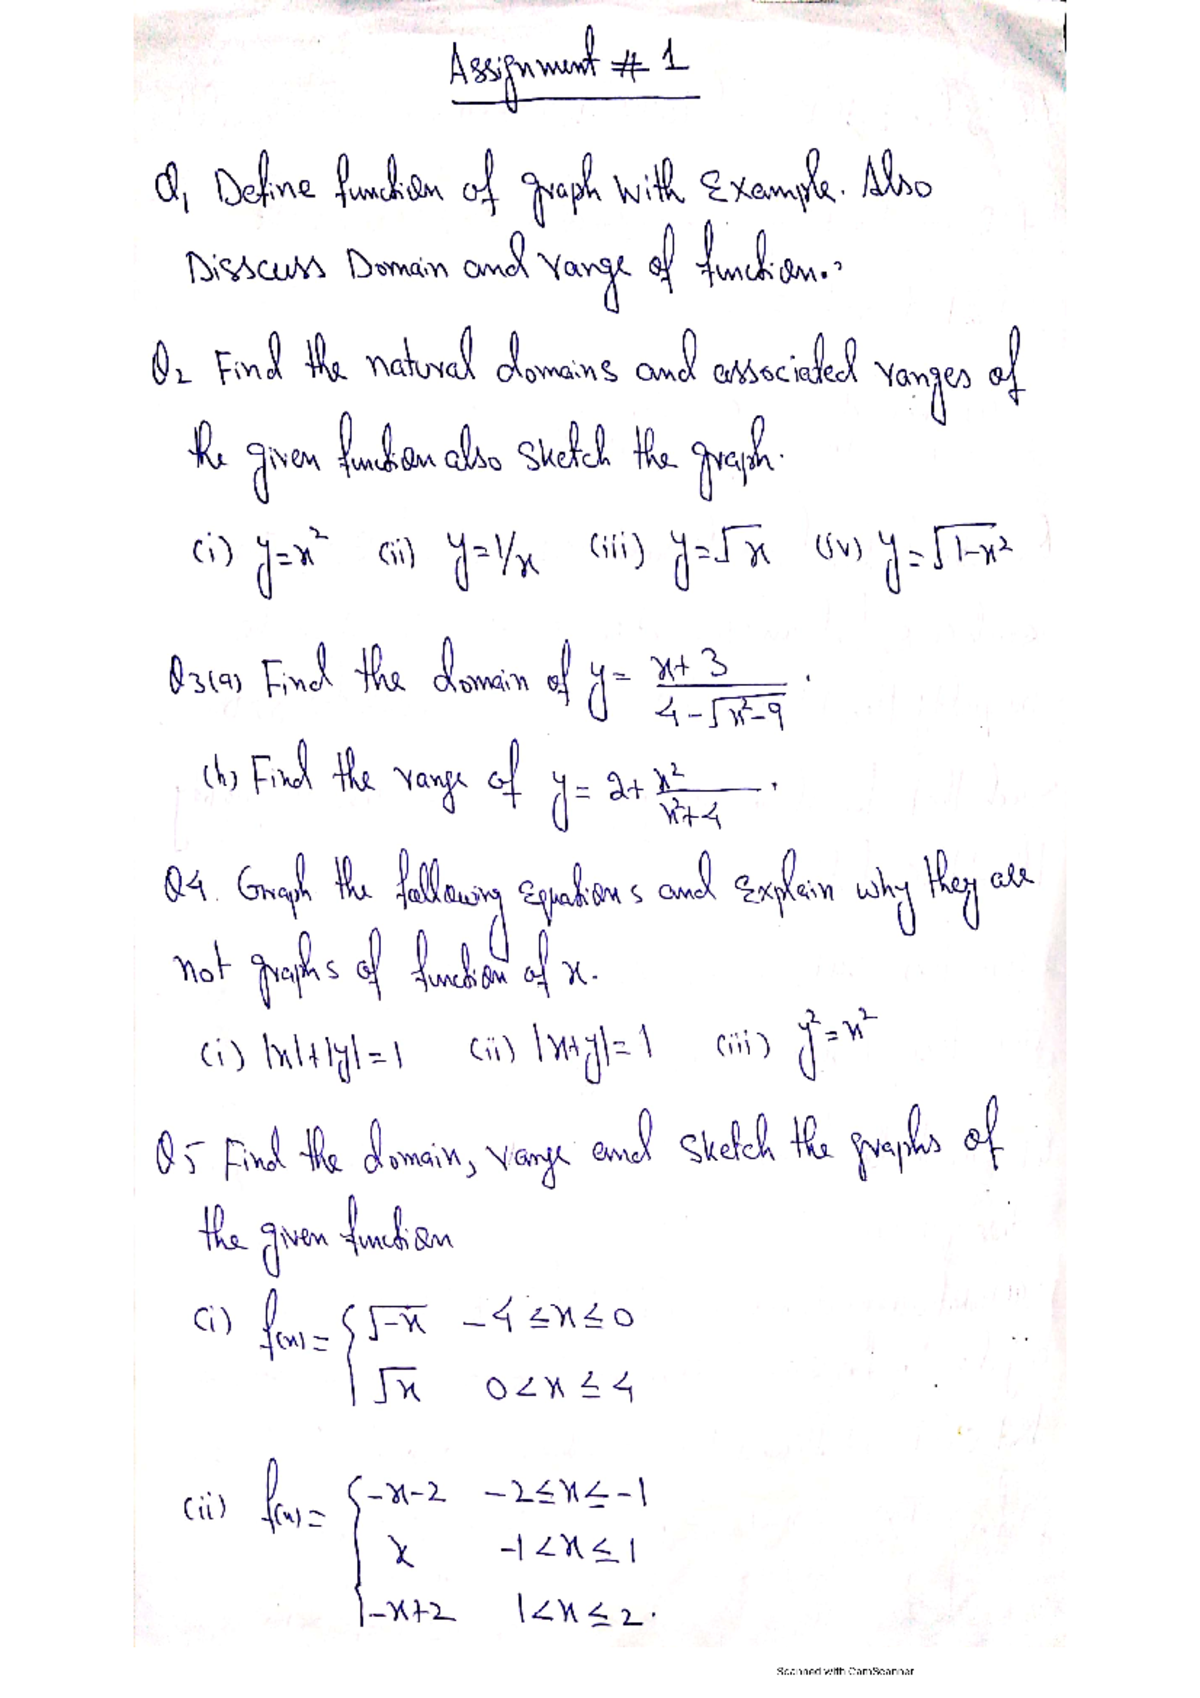 Assignment # 1
Q1 Define function of graph with Example. Also
Disscuss Domain and range of function.?
Q2 Find the natural domains and associated ranges of
the given function also sketch the graph.
(i) y=x² (ii) y=1/x (iii) y=√x (iv) y=√1-x²
Q3(a) Find the domain of y= x+3 / 4-√x²-9 .
(b) Find the range of y= 2+ x² / x²+4 .
Q4. Graph the following Equations and Explain why they are
not graphs of function of x.
(i) |x|+|y|=1 (ii) |x+y|=1 (iii) y²=x²
Q5 Find the domain, range and sketch the graphs of
the given function
(i) f(x)= { √-x -4≤x≤0
√x 0<x≤4
(ii) f(x)= { -x-2 -2≤x≤-1
x -1<x≤1
-x+2 1<x≤2.
Scanned with CamScanner